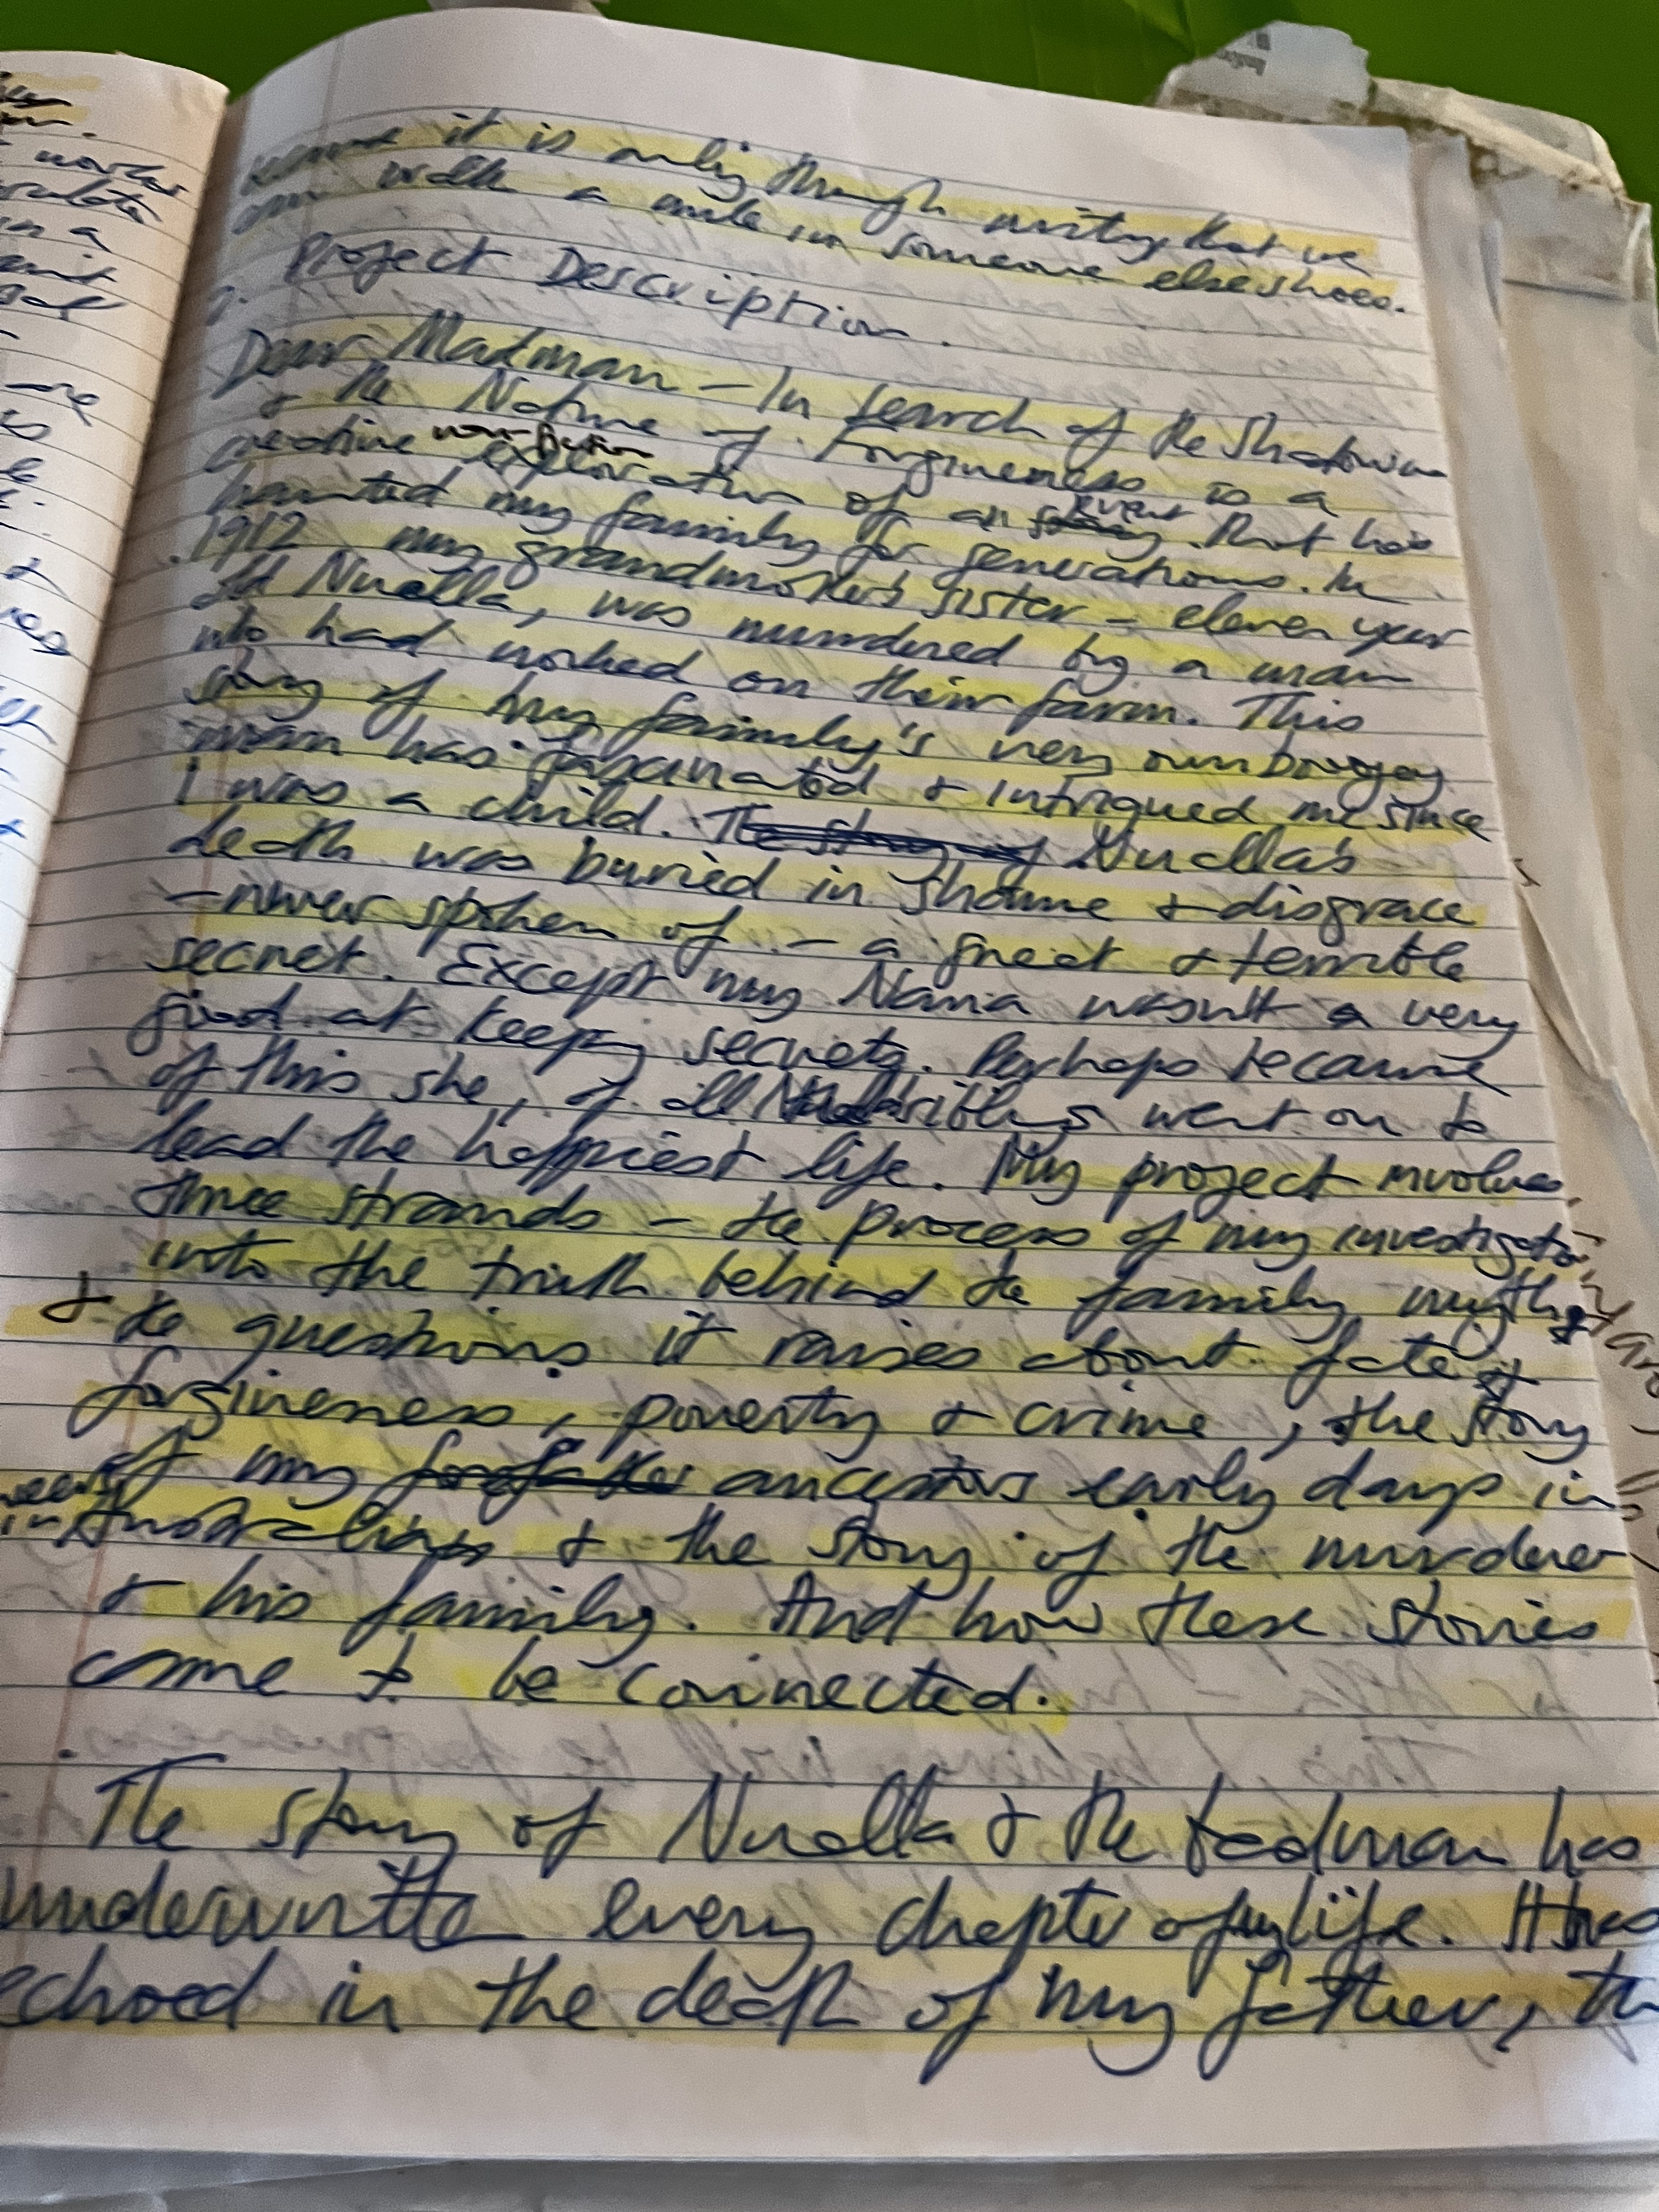 it is only through writing that we
can walk a mile in someone else shoes.
2. Project Description.
Dear Madman – In search of the Shadowman
& the Nature of Forgiveness is a
creative non-fiction exploration of an event that has
haunted my family for generations. In
1912 my grandmother's sister – eleven year
old Nuella, was murdered by a man
who had worked on their farm. This
story of my family's very own boogey
man has fascinated & intrigued me since
I was a child. The story of Nuella's
death was buried in shame & disgrace
– never spoken of – a great & terrible
secret. Except my Nana wasn't a very
good at keeping secrets. Perhaps because
of this she, of all siblings went on to
lead the happiest life. My project involves
three strands – the process of my investigation
into the truth behind the family myth &
& the questions it raises about fate &
forgiveness, poverty & crime, the story
of my ancestors early days in
Australia & the story of the murderer
& his family. And how these stories
came to be connected.
The story of Nuella & the badman has
underwritten every chapter of my life. It has
echoed in the death of my father, th